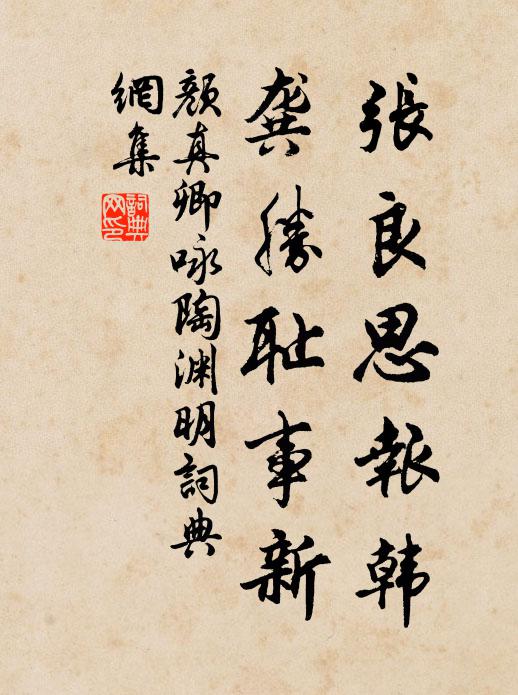 張良思報韩
龚勝耻事新
顔真卿咏陶渊明詞典
網集
詞典
网印